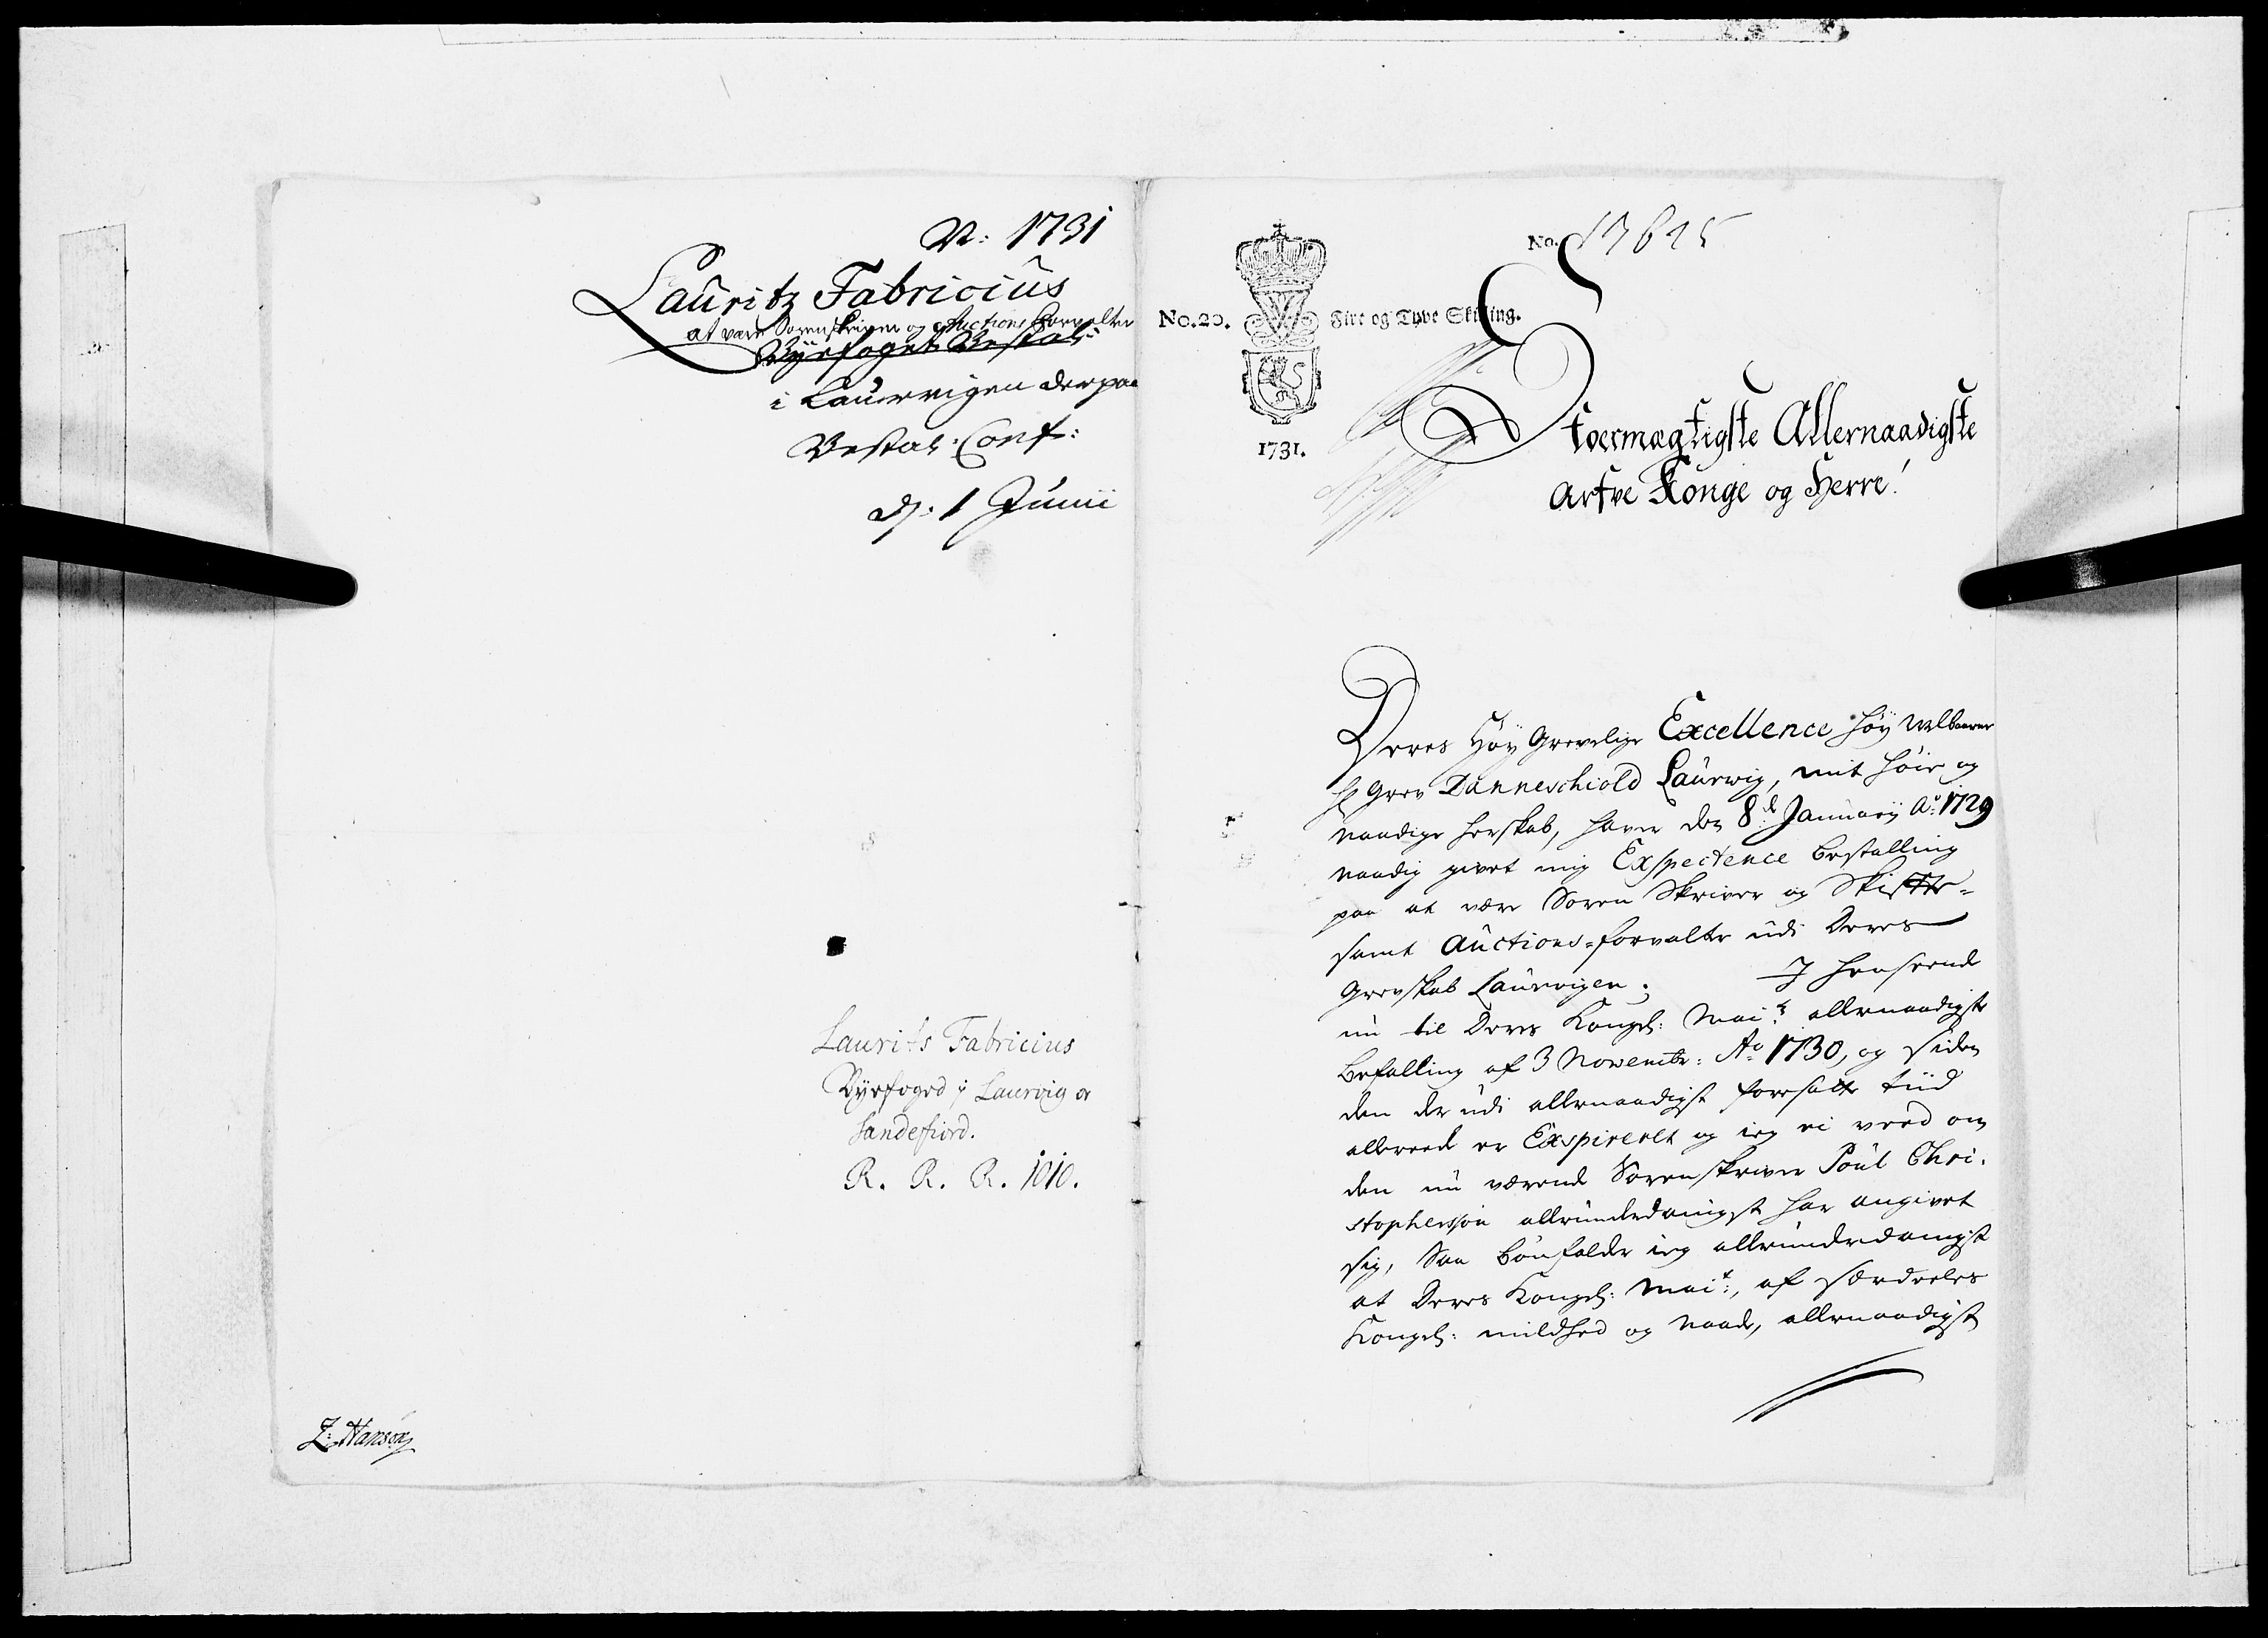 N: 1731
Lauritz Fabricius
at være Sorenskriver og Auctions Forvalter
Byefoget Bestal:
i Laurvigen derpaa
Bestal: Conf:
d: 1 Junii
Laurits Fabricius
Byefoged i Laurvig og
Sandefiord.
R. R. R. 1010.
L: Hansøn
No. 13615
No. 20. Fire og Tyve Skilling.
1731.
Stoermægtigste Allernaadigste
Arfve Konge og Herre!
Deres Høy Grevelige Excellence Høy Velbaarne
Hr Grev Danneschiold Laurwig, mit høie og
naadige herskab, haver den 8de Januarij Ao: 1729
naadig givet mig Exspectence bestalling
paa at være Soren Skriver og Skifte-
samt Auctions-forvalter udi Deres
Grevskab Laurvigen; I henseende
nu til Deres Kongel: Mai:ts allernaadigste
befalling af 3 Novembr: Ao 1730, og siden
den der udi allernaadigst foresatte tiid
allereede er Exspireret og ieg ei veed om
den nu værende Sorenskriver Poul Chri-
stophersøn allerunderdanigst har angivet
sig, Saa bønfalder ieg allerunderdanigst
at Deres Kongel: Mai:t, af særdeeles
Kongel: mildhed og naade, allernaadigst